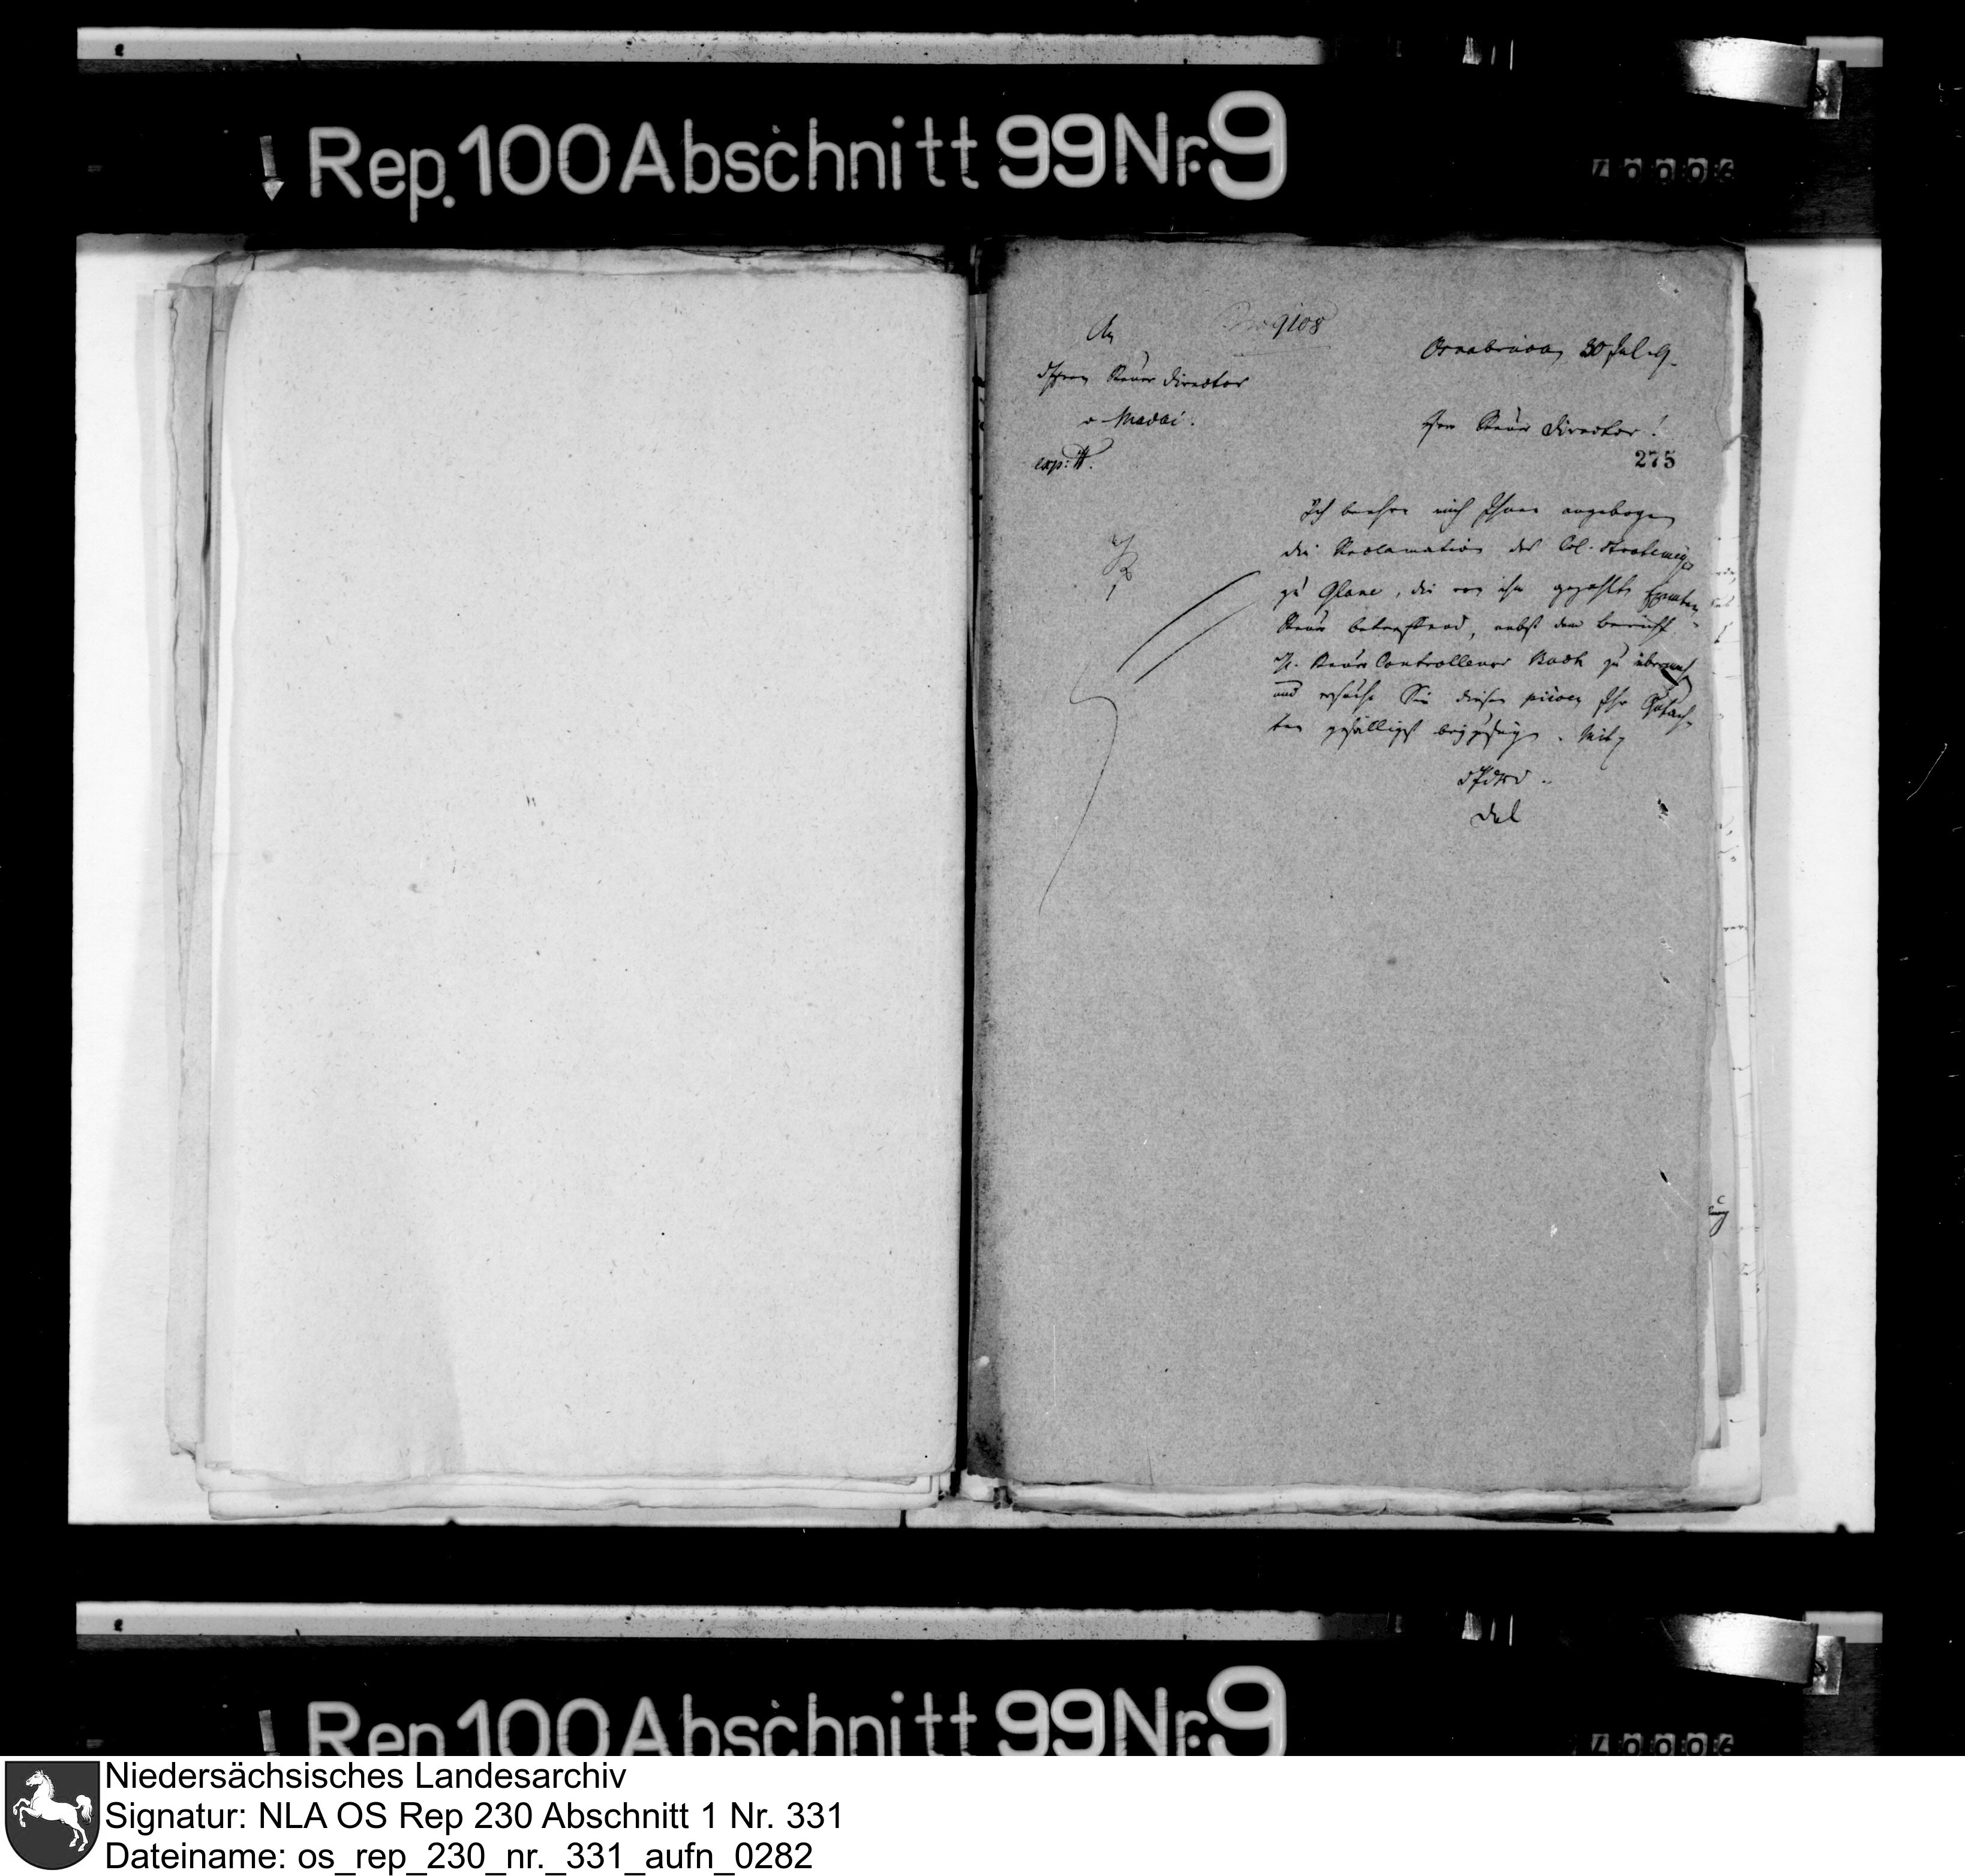 Rep. 100 Abschnitt 99 Nr. 9
An
Herrn Steuer Director
v Madai.
exp:
9108
Osnabrück, 30 Jul. 9.
Herr Steuer Director!
275
Ich beehre mich Ihnen angebogen
die Reclamation des Col.
zu Glane, die von ihm gezahlte
Steuer betreffend, nebst dem Bericht
H. Steuer Controlleurs zu
und ersuche Sie diesen piècen Ihr Gutach-
ten gefälligst beyzufügen. Mit
Rep. 100 Abschnitt 99 Nr. 9
Niedersächsisches Landesarchiv
Signatur: NLA OS Rep 230 Abschnitt 1 Nr. 331
Dateiname: os_rep_230_nr._331_aufn_0282